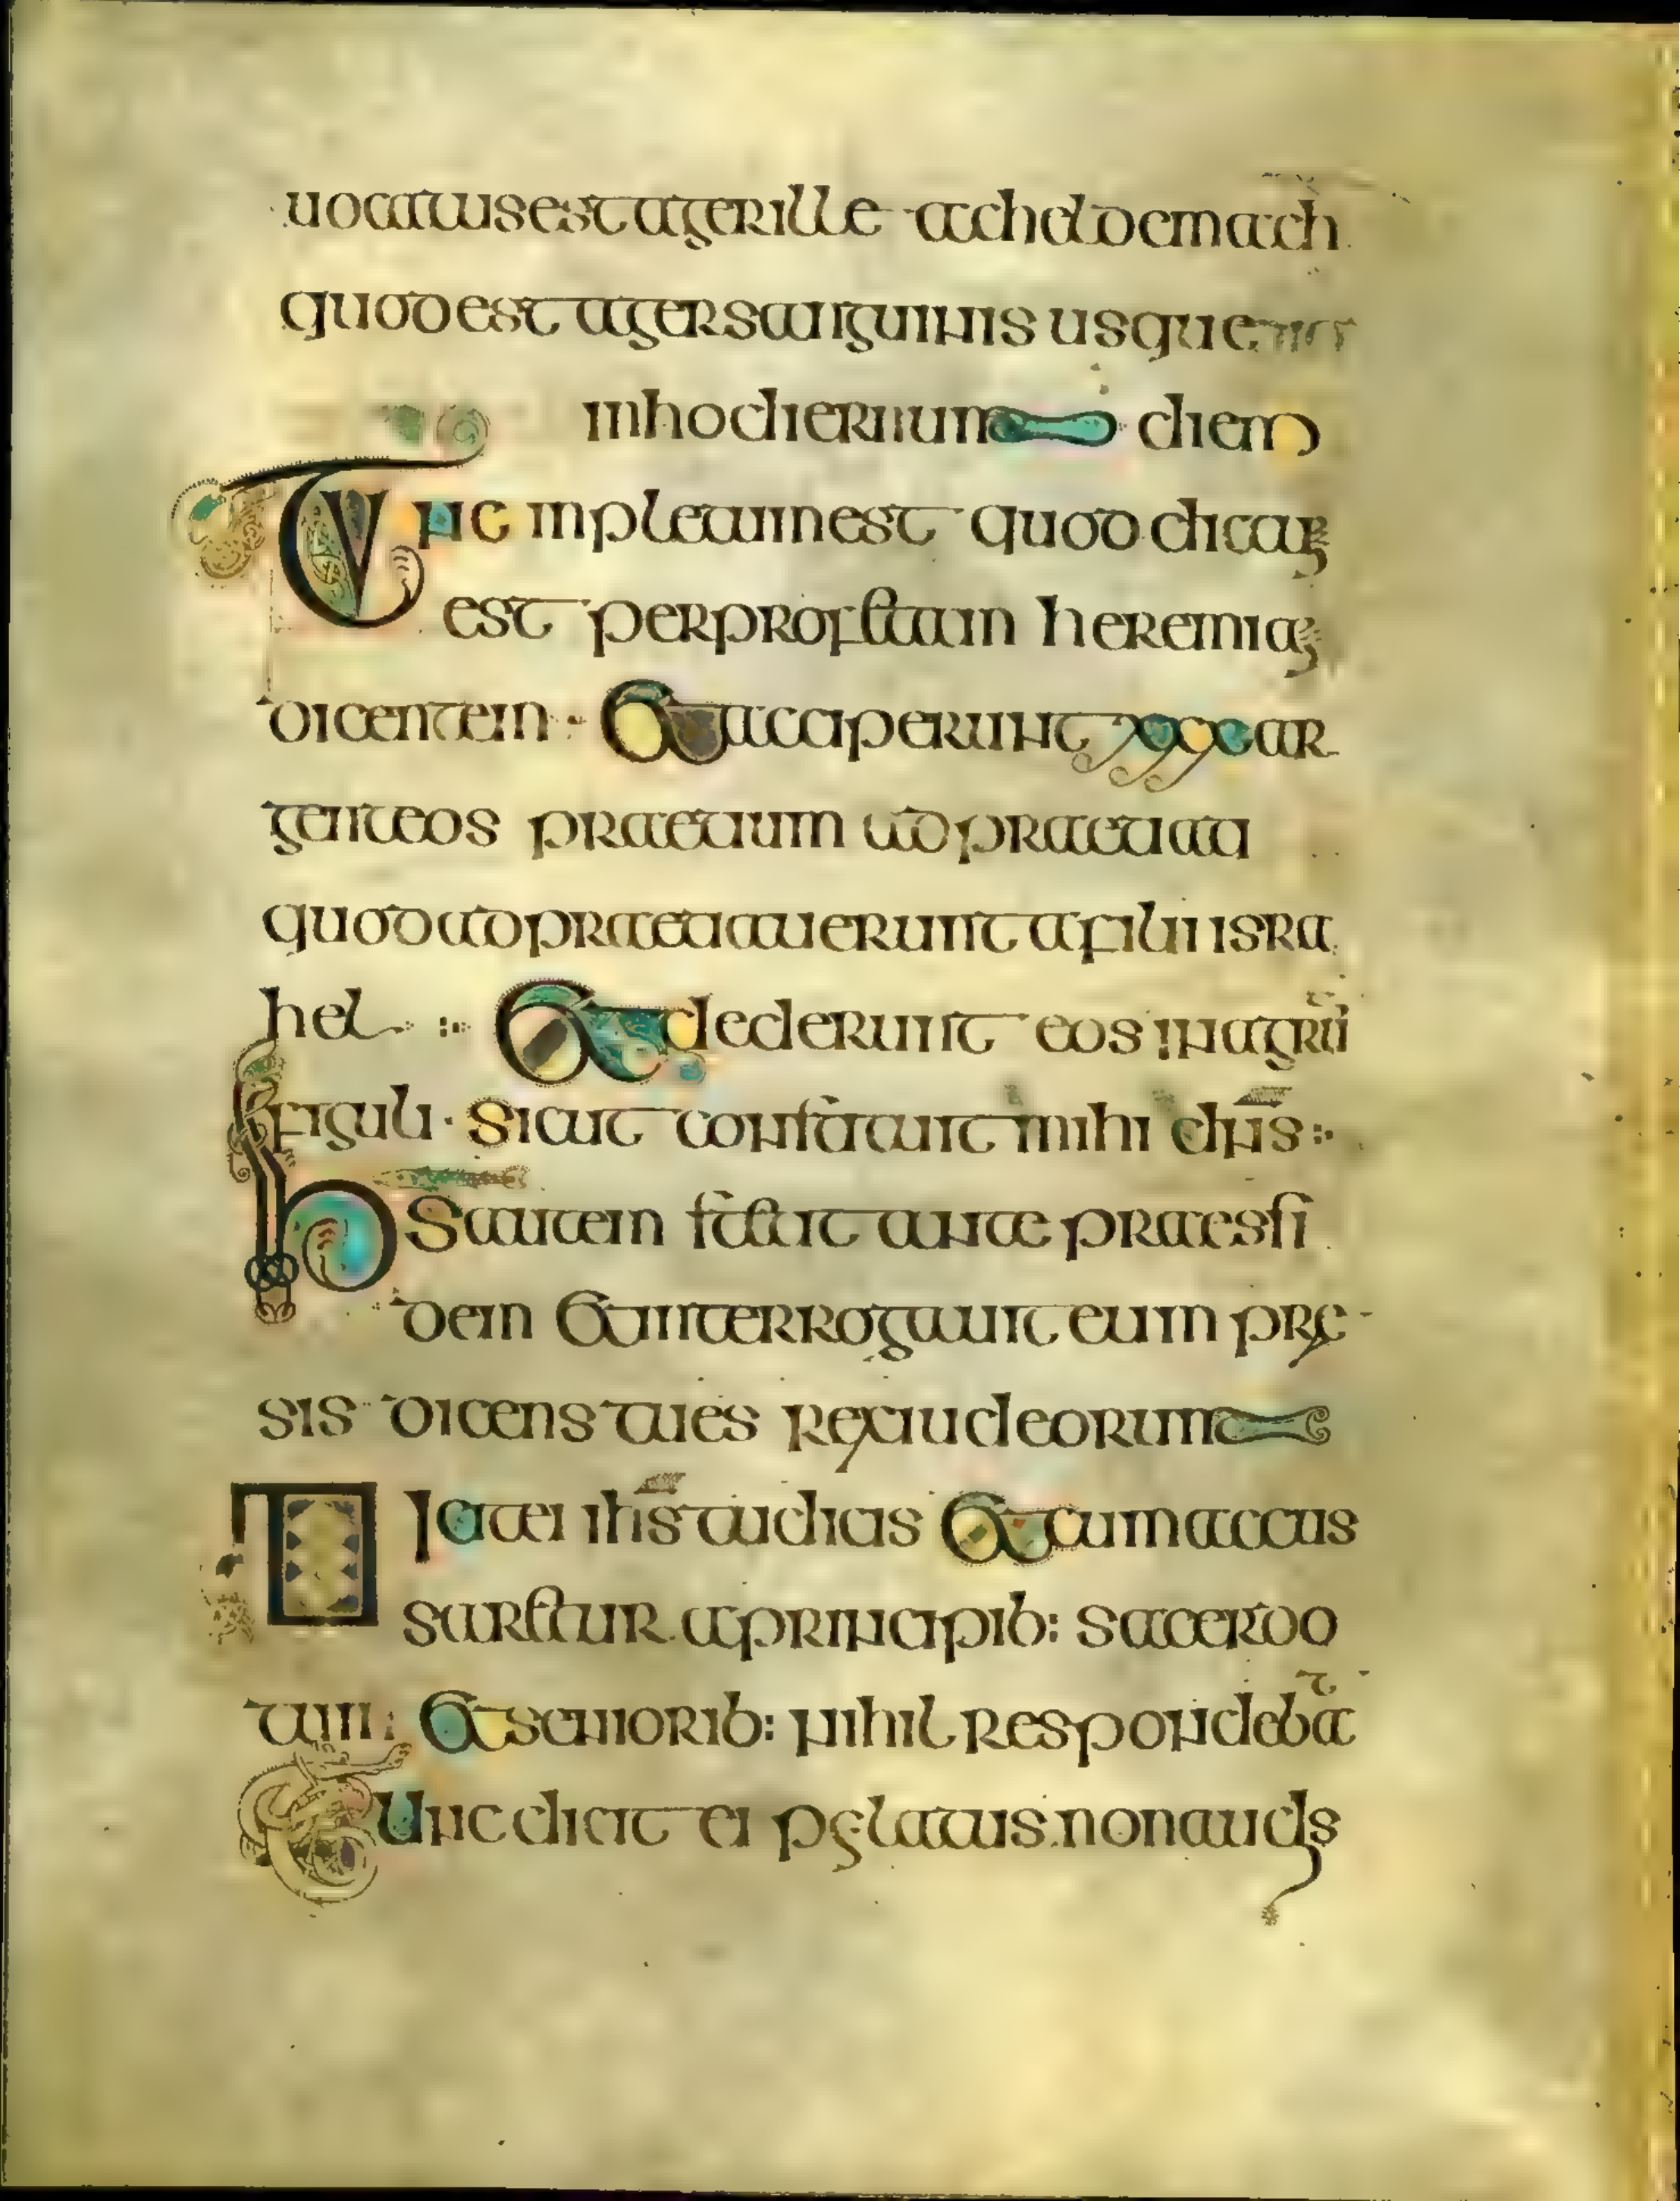 uocatus est ager ille acheldemach
quod est ager sanguinis usque
in hodiernum diem
Tunc inpletum est quod dictum
est per profetam heremiam
dicentem · Et acciperunt xxx ar
genteos praetium adpraetiati
quod adpraetiauerunt a filii isra
hel :· Et dederunt eos in agrū
figuli · sicut constituit mihi dn̄s :·
ihs autem stetit ante praesi
dem et interrogauit eum prę
sis dicens tu es rex iudeorum
Dicit ei ih̄s tu dicis Et cum accus
saretur a principib: sacerdo
tum : Et seniorib: nihil respondebat
Tunc dicit ei pylatus non audis